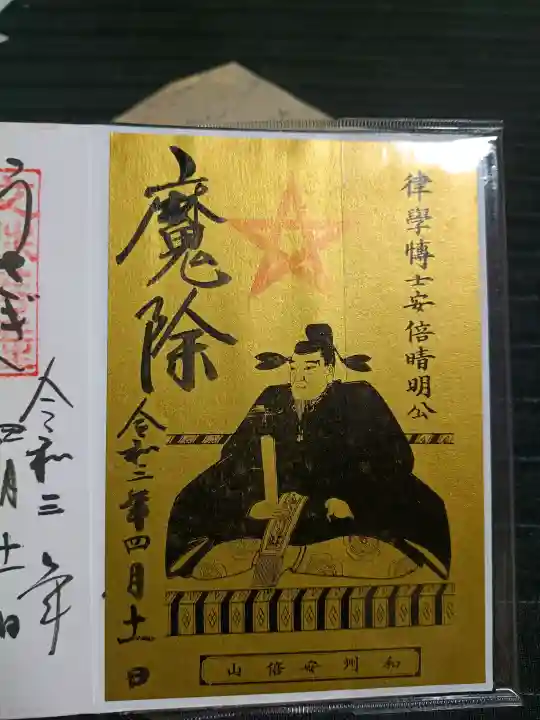 律學博士安倍晴明公
魔除
令和三年四月十一日
和州安倍山
うさぎ
令和三年
四月十一日